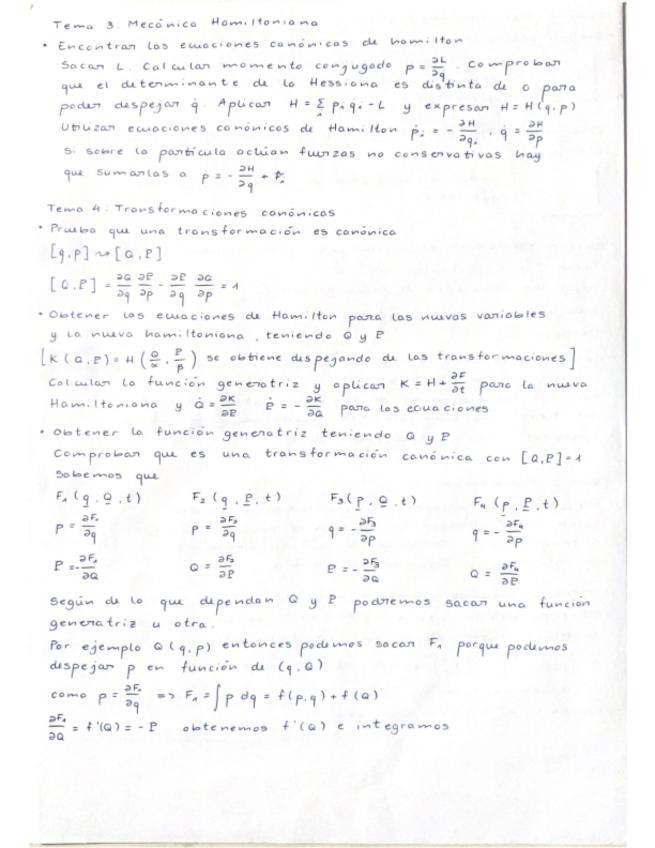 Tema 3. Mecánica Hamiltoniana
• Encontrar las ecuaciones canónicas de hamilton
Sacar L. Calcular momento conjugado p = ∂L/∂q̇. Comprobar
que el determinante de la Hessiana es distinta de 0 para
poder despejar q̇. Aplicar H = Σ pᵢ q̇ᵢ - L y expresar H = H(q, p)
Utilizar ecuaciones canónicas de Hamilton ṗᵢ = - ∂H/∂qᵢ, q̇ = ∂H/∂p
Si sobre la partícula actúan fuerzas no conservativas hay
que sumarlas a ṗ = - ∂H/∂q +
Tema 4: Transformaciones canónicas
• Prueba que una transformación es canónica
[q, p] ⇝ [Q, P]
[Q, P] = ∂Q/∂q ∂P/∂p - ∂P/∂q ∂Q/∂p = 1
• Obtener las ecuaciones de Hamilton para las nuevas variables
y la nueva hamiltoniana, teniendo Q y P
[K(Q, P) = H(Q/α, P/β) se obtiene despejando de las transformaciones]
Calcular la función generatriz y aplicar K = H + ∂F/∂t para la nueva
Hamiltoniana y Q̇ = ∂K/∂P Ṗ = - ∂K/∂Q para las ecuaciones
• Obtener la función generatriz teniendo Q y P
Comprobar que es una transformación canónica con [Q, P] = 1
Sabemos que
F₁(q, Q, t) F₂(q, P, t) F₃(p, Q, t) F₄(p, P, t)
p = ∂F₁/∂q p = ∂F₂/∂q q = - ∂F₃/∂p q = - ∂F₄/∂p
P = - ∂F₁/∂Q Q = ∂F₂/∂P P = - ∂F₃/∂Q Q = ∂F₄/∂P
Según de lo que dependan Q y P podremos sacar una función
generatriz u otra.
Por ejemplo Q(q, p) entonces podemos sacar F₁ porque podemos
despejar p en función de (q, Q)
como p = ∂F₁/∂q => F₁ = ∫ p dq = f(p, q) + f(Q)
∂F₁/∂Q = f'(Q) = - P obtenemos f'(Q) e integramos